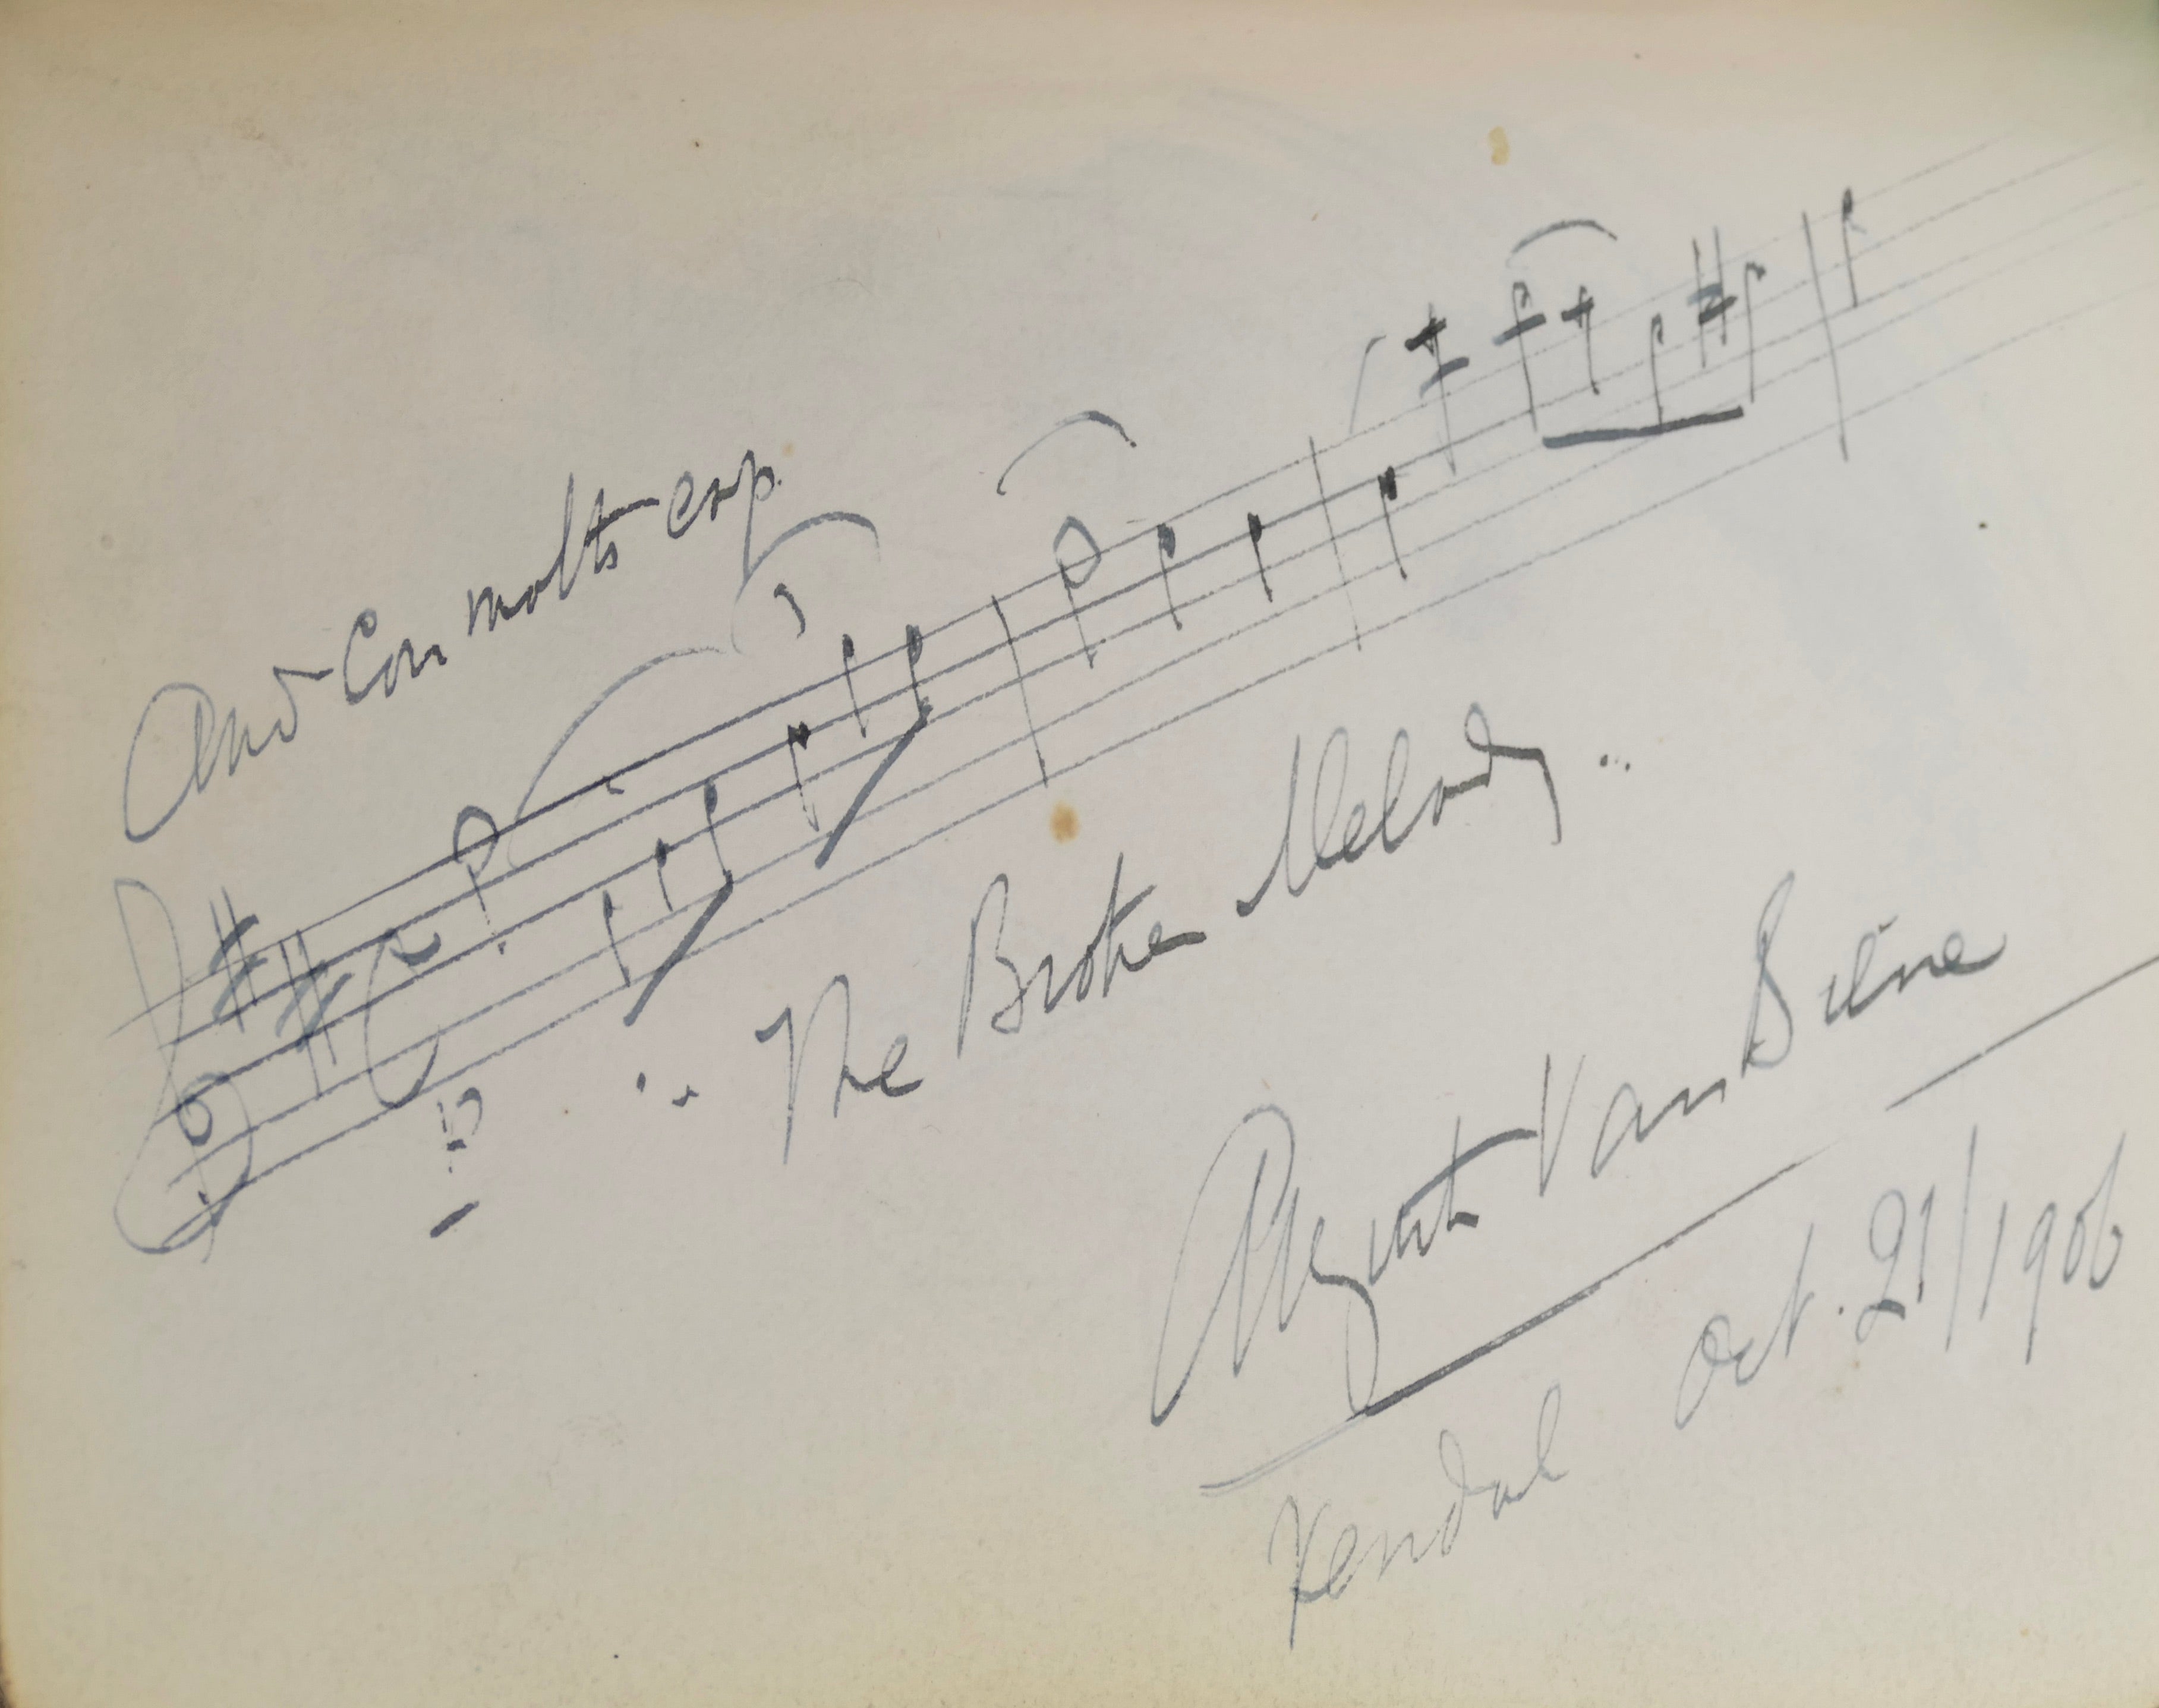 And Con molto esp.
p
"The Broken Melody"
Auguste Van Biene
Kendal Oct. 21/1906